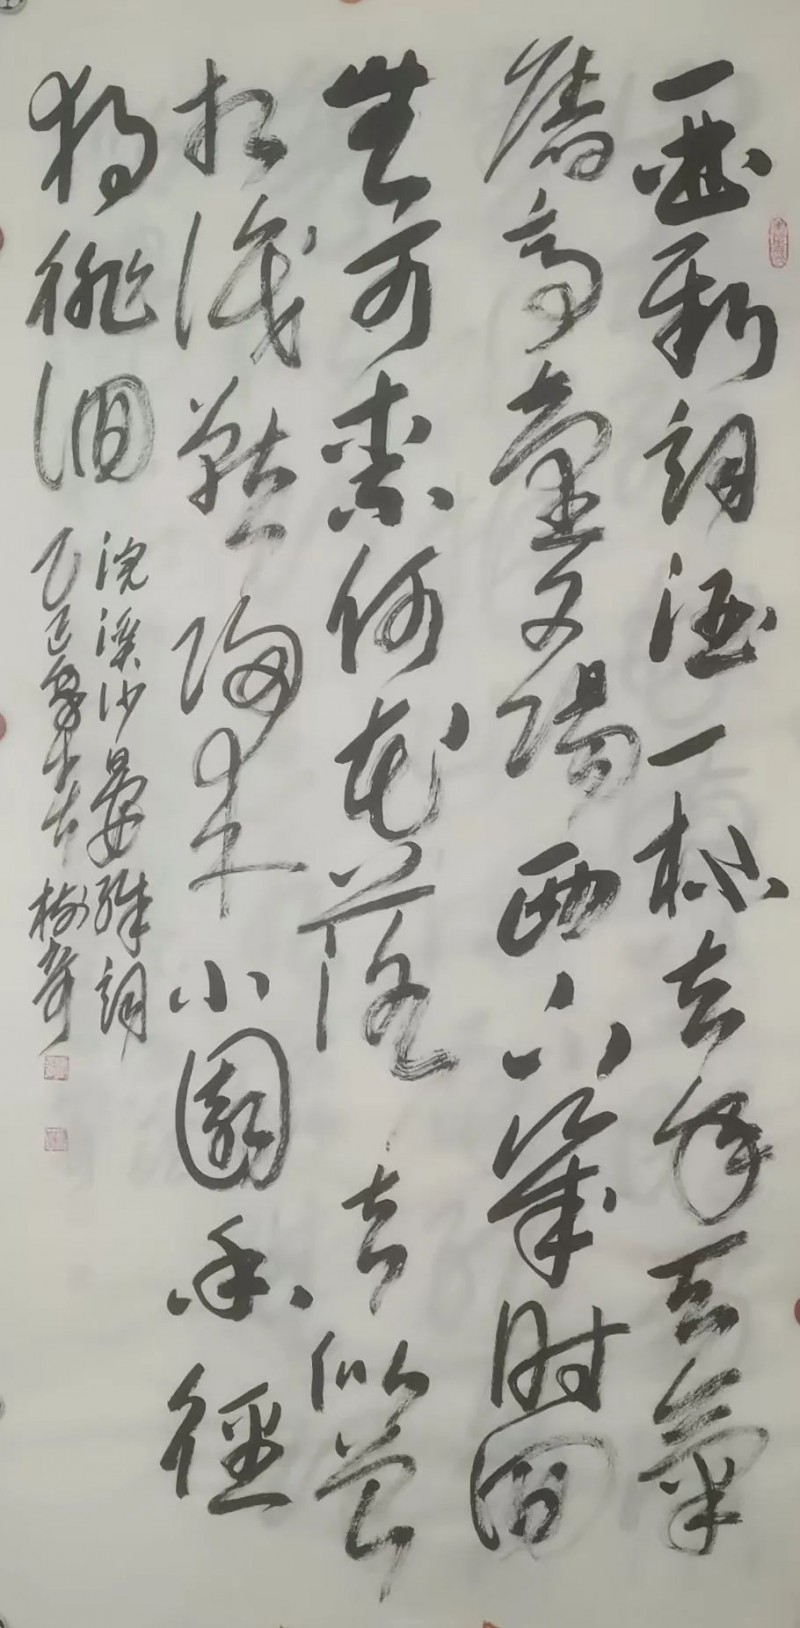 一曲新詞酒一杯去年天氣
舊亭臺夕陽西下幾时回
無可奈何花落去似曾
相識燕歸来小園香徑
獨徘徊
浣溪沙晏殊詞
乙巳